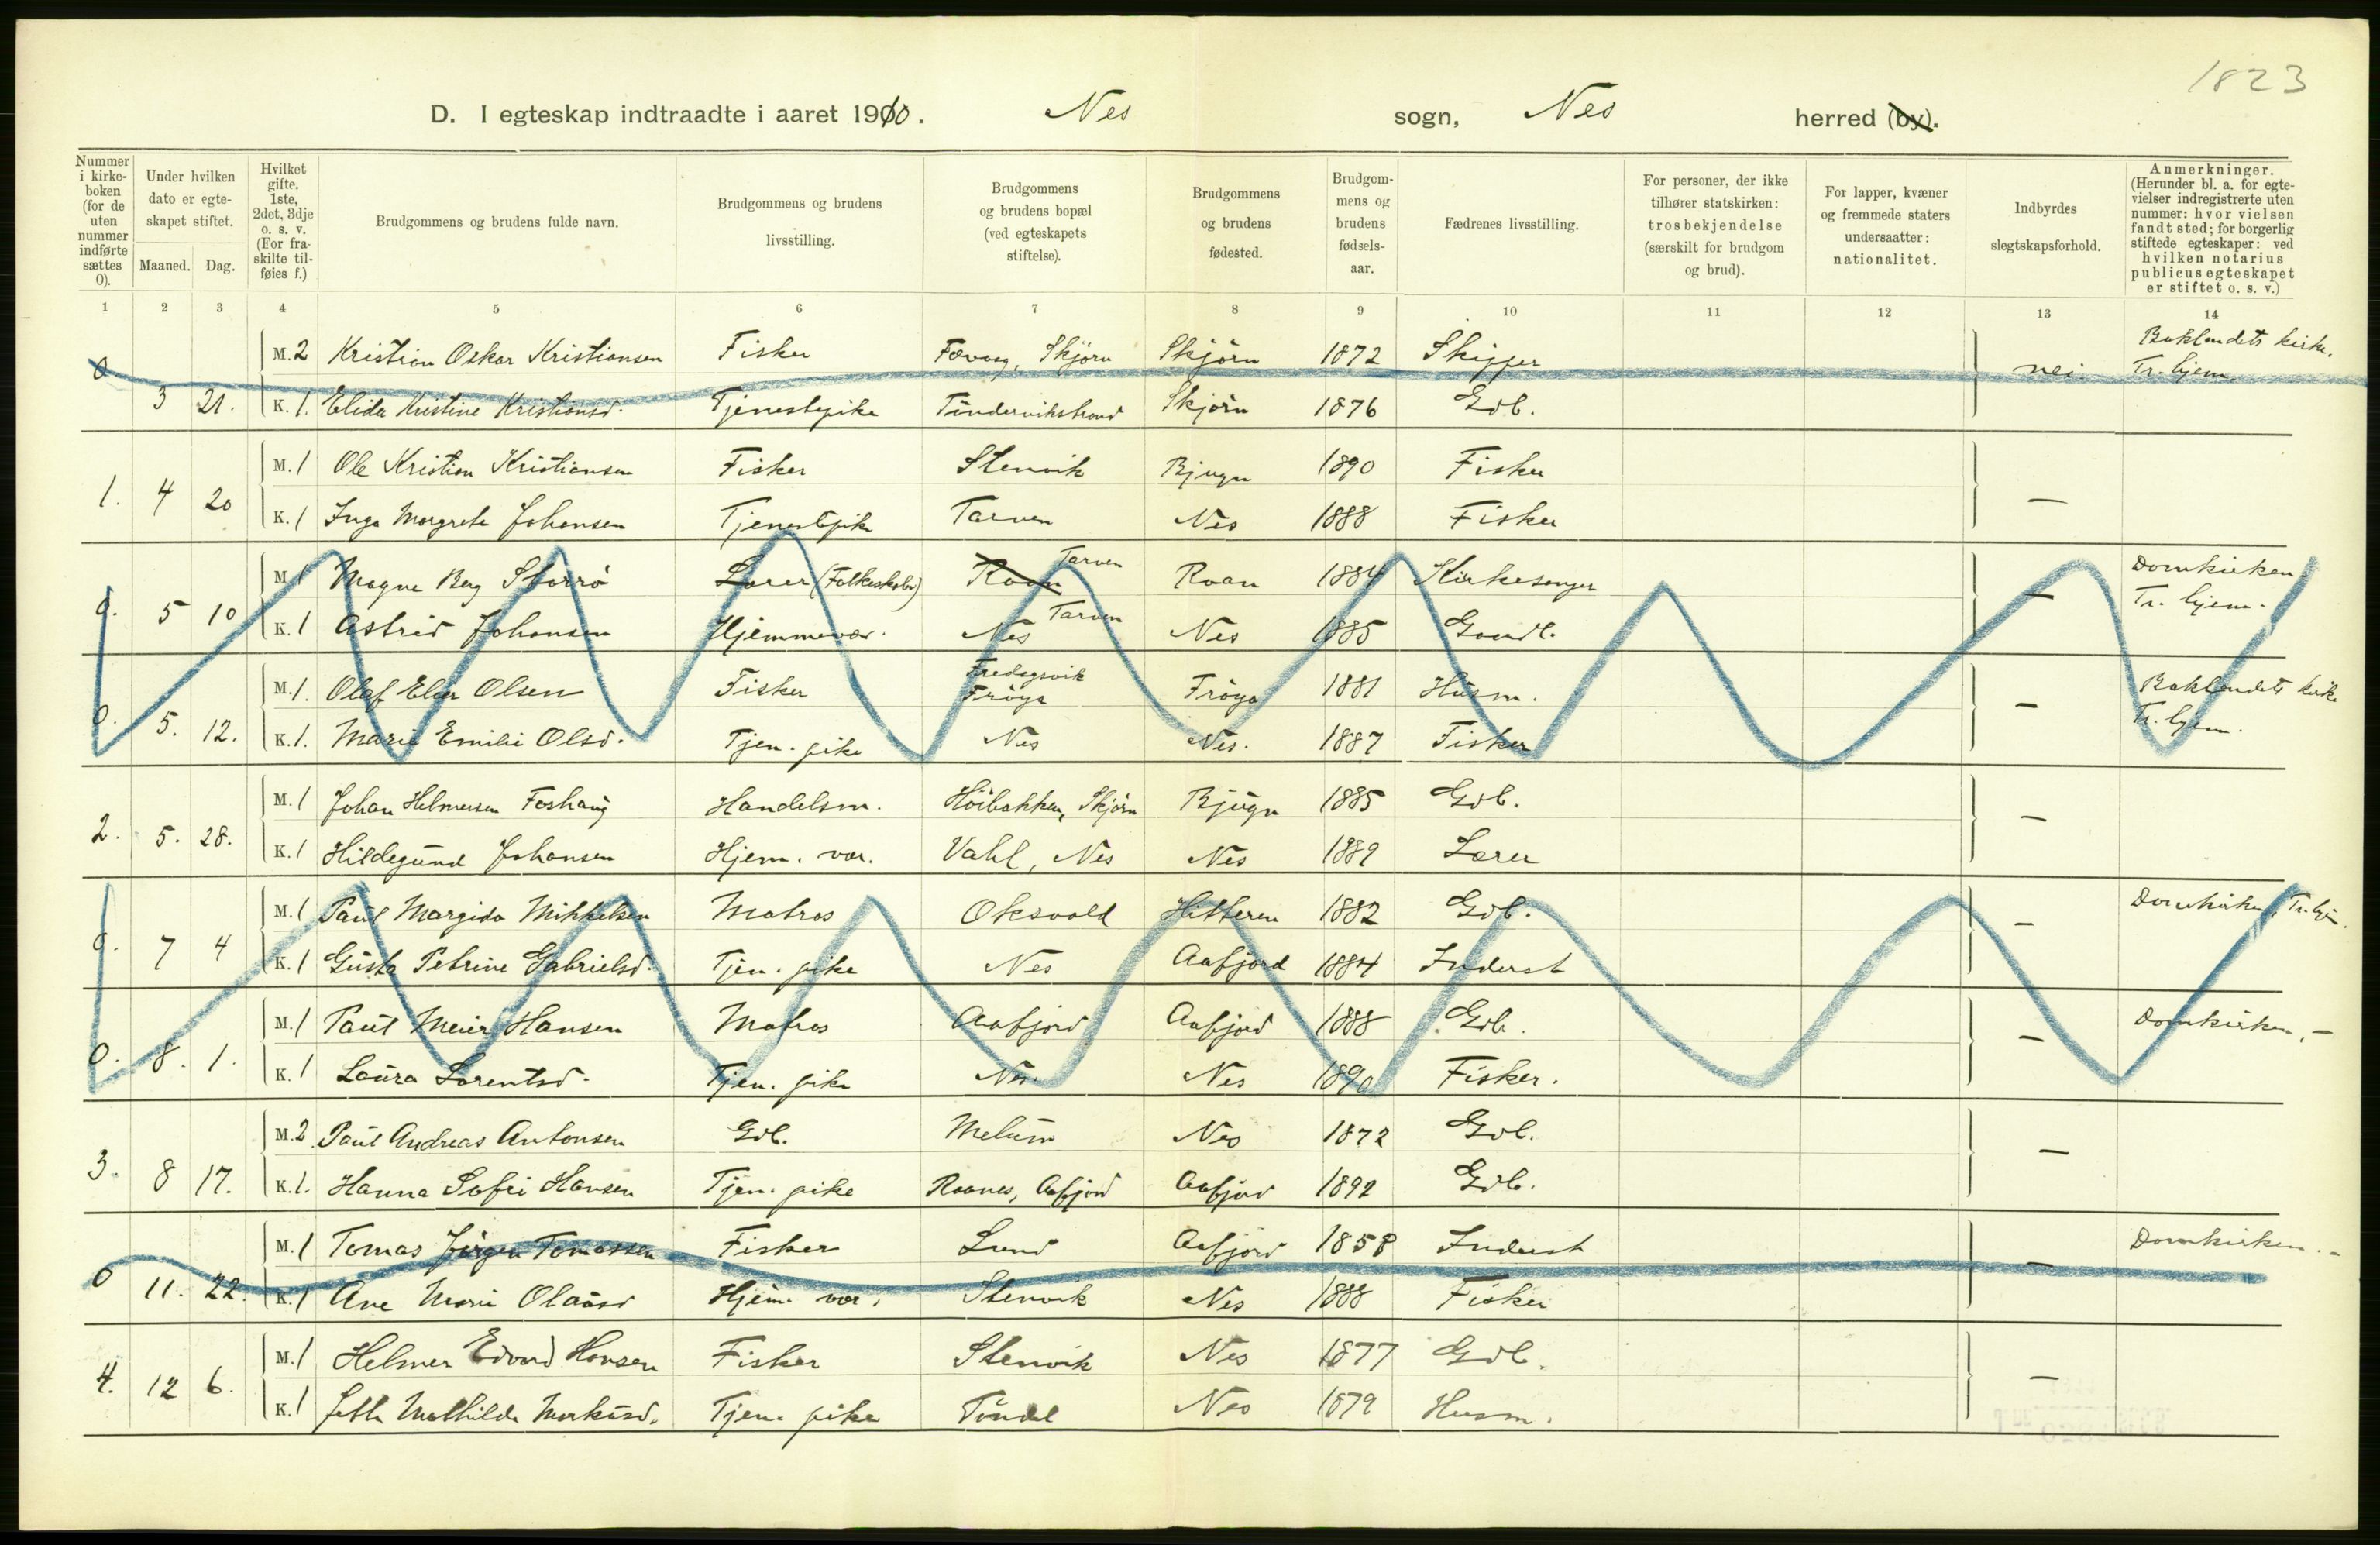 1823
D. I egteskap indtraadte i aaret 1910. Nes sogn, Nes herred (by).
Nummer i kirke-boken (for de uten nummer indførte sættes 0).
Under hvilken dato er egte-skapet stiftet.
Maaned. Dag.
Hvilket gifte. 1ste, 2det, 3dje o. s. v. (For fra-skilte til-føies f.)
Brudgommens og brudens fulde navn.
Brudgommens og brudens livsstilling.
Brudgommens og brudens bopæl (ved egteskapets stiftelse).
Brudgommens og brudens fødested.
Brudgom-mens og brudens fødsels-aar.
Fædrenes livsstilling.
For personer, der ikke tilhører statskirken: trosbekjendelse (særskilt for brudgom og brud).
For lapper, kvæner og fremmede staters undersaatter: nationalitet.
Indbyrdes slegtskapsforhold.
Anmerkninger. (Herunder bl. a. for egte-vielser indregistrerte uten nummer: hvor vielsen fandt sted; for borgerlig stiftede egteskaper: ved hvilken notarius publicus egteskapet er stiftet o. s. v.)
1 2 3 4 5 6 7 8 9 10 11 12 13 14
M. 2 Kristian Oskar Kristiansen Fisker Skjörn Skjörn 1872 Skipper Baklandets kirke,
0 3 21. nei Tr.hjem.
K. 1. Elida Kristine Kristiansd. Tjenestepike Skjörn 1876 Gdb.
M. 1 Ole Kristian Kristiansen Fisker Stenvik Bjugn 1890 Fisker
1. 4 20 —
K. 1 Inga Margrete Johansen Tjenestepike Tarven Nes 1888 Fisker
M. 1 Magne Berg Storrö Lærer (Folkeskole) Roan Tarven Roan 1884 Kirkesanger Domkirken
0. 5 10 — Tr. hjem.
K. 1 Astrid Johansen Hjemmevær. Nes Tarven Nes 1885 Gaardb.
M. 1. Olaf Elier Olsen Fisker Fredagsvik Fröya Fröya 1881 Husm. Baklandets kirke
0. 5. 12. — Tr. hjem.
K. 1. Marie Emilie Olsd. Tjen. pike Nes Nes. 1887 Fisker
M. 1 Johan Helmersen Foshaug Handelsm. Höibakken, Skjörn Bjugn 1885 Gdb.
2. 5. 28. —
K. 1 Hildegund Johansen Hjem. vær. Vahl, Nes Nes 1889 Lærer
M. 1 Paul Margido Mikkelsen Matros Oksvold Hitteren 1882 Gdb. Domkirken, Tr.hjem.
0. 7 4 —
K. 1 Gusta Petrine Gabrielsd. Tjen. pike Nes Aafjord 1884 Inderst
M. 1 Paul Meier Hansen Matros Aafjord Aafjord 1888 Gdb. Domkirken, —
0. 8. 1. —
K. 1 Laura Lorentsd. Tjen. pike Nes. Nes 1890 Fisker.
M. 2. Paul Andreas Antonsen Gdb. Melum Nes 1872 Gdb.
3. 8 17. —
K. 1. Hanna Sofie Hansen Tjen. pike Raanes, Aafjord Aafjord 1892 Gdb.
M. 1 Tomas Jörgen Tomassen Fisker Lund Aafjord 1858 Inderst Domkirken. -
0 11. 22. —
K. 1 Ane Marie Olausd Hjem. vær. Stenvik Nes 1888 Fisker
M. 1 Helmer Edvard Hansen Fisker Stenvik Nes 1877 Gdb.
4. 12 6. —
K. 1 Mathilde Markusd. Tjen. pike Töndel Nes 1879 Husm.